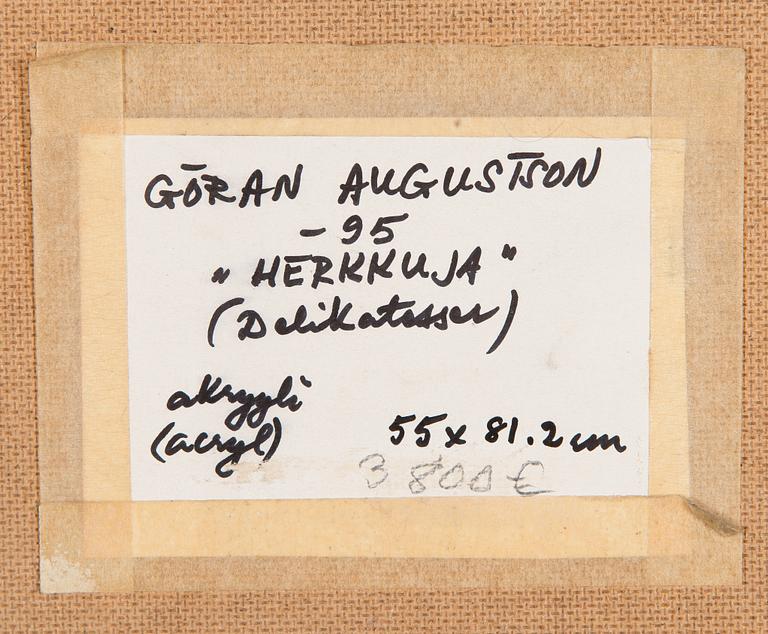 GÖRAN AUGUSTSON
-95
"HERKKUJA"
(Delikatesser)
akryyli
(acryl)
55x81.2cm
3 800 €